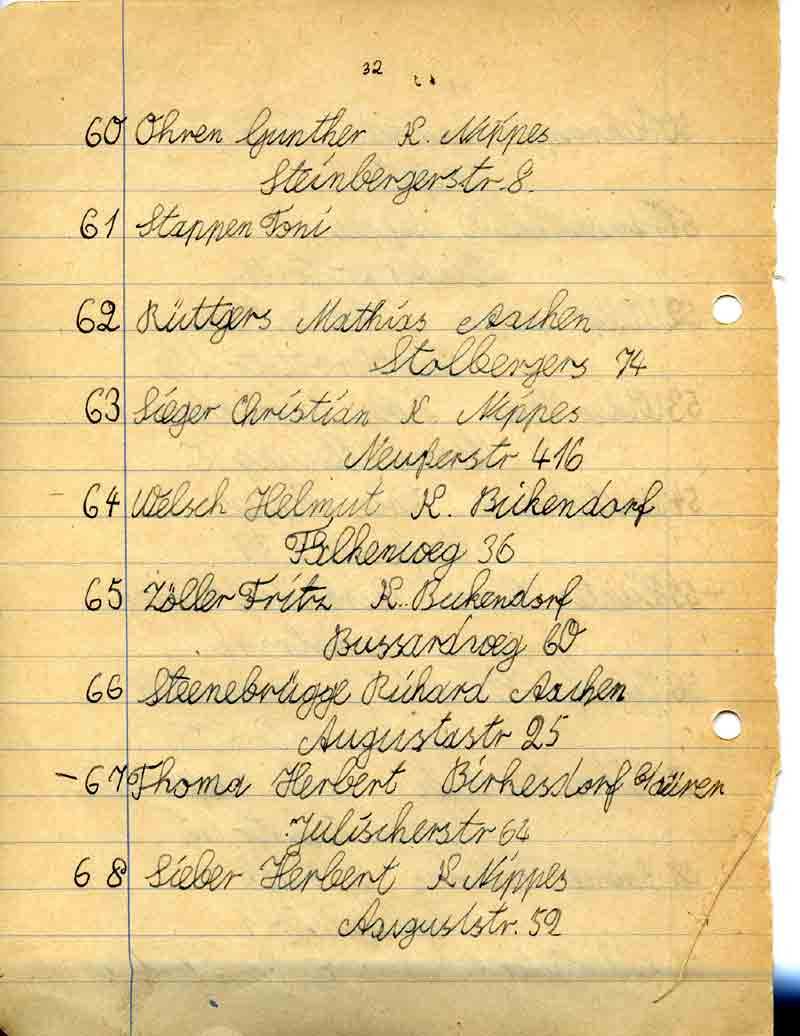 32
60 Ohren Gunther K. Nippes
Steinbergerstr. 8.
61 Stappen Toni
62 Rüttgers Mathias Aachen
Stolbergers 74
63 Sieger Christian K. Nippes
Neußerstr 416
- 64 Welsch Helmut K. Bickendorf
Falkenweg 36
65 Zöller Fritz K. Bickendorf
Bussardweg 60
66 Steenebrügge Richard Aachen
Augustastr 25
- 67 Thoma Herbert Birkesdorf b/Düren
Jülicherstr 64
68 Sieber Herbert K Nippes
Auguststr. 52